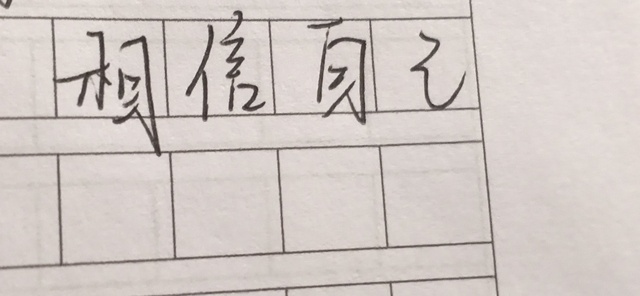 相信自己